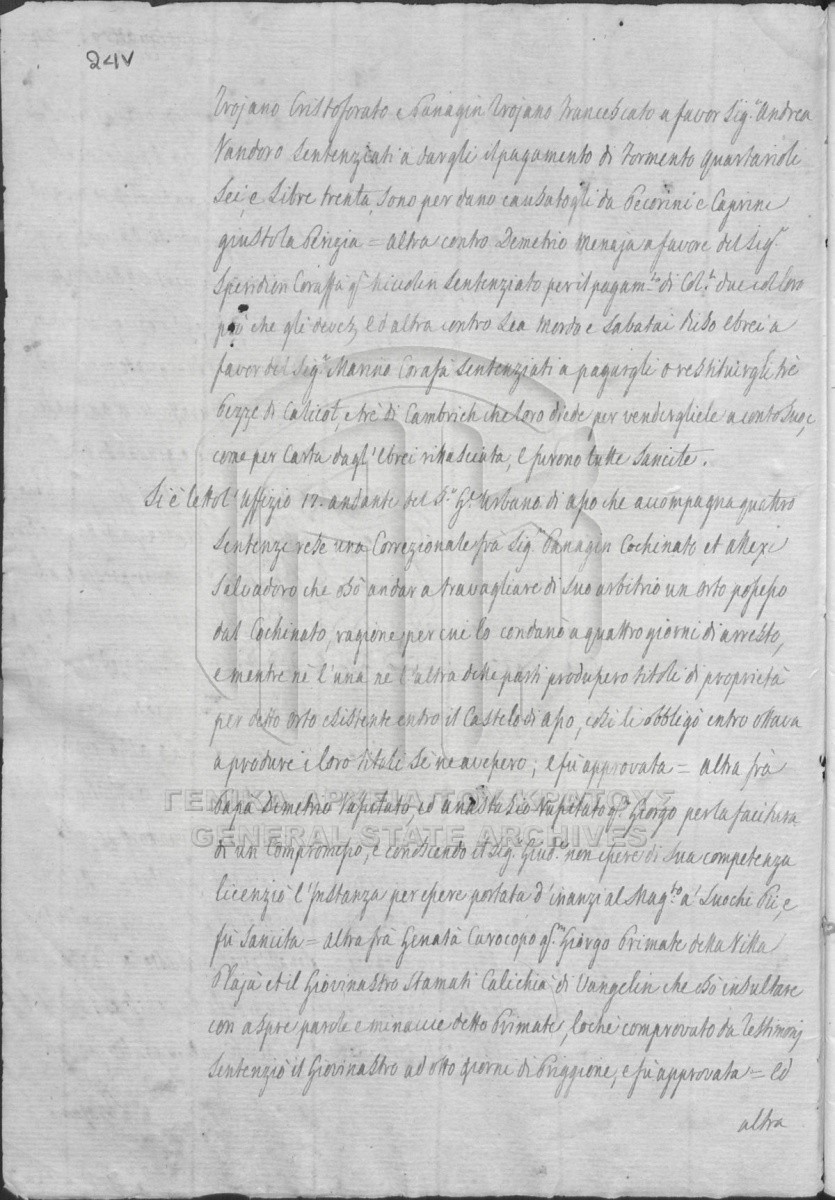 24v
Trojano Cristoforato e Panagin Trojano Francescato a favor Sig.r Andrea
Vandoro Sentenziati a dargli il pagamento di Formento quartarioli
Sei, e Libre trenta, sono per dano causatogli da Pecorini e Caprini
giusto la Perizia = altra contro Demetrio Menaja a favore del Sig.r
Speridion Coraffà q.m Niccolen Sentenziato per il pagam.to di Col.ti due col loro
prò che gli deve, ed altra contro Lea Mordo e Sabatai Ebrei a
favor del Sig.r Marino Corafà Sentenziati a pagargli o restituirgli trè
Pezze di Calicot, e trè di Cambrich che loro diede per vendergliele a conto Suo, e
come per Carta dagl'Ebrei rillasciata, e furono tutte Sancite.
Si è letto l'Uffizio 12. andante del G.e Urbano di Aßo che accompagna quattro
Sentenze rese una Correzionale frà Sig.r Panagin Cochinato et Allexi
Salvadoro che osò andar a travagliare di Suo arbitrio un orto poßeßo
dal Cochinato, ragione per cui lo condanò a quattro giorni di arresto,
e mentre nè l'una nè l'altra delle parti produßero titoli di proprietà
per detto orto esistente entro il Castelo di Aßo, così li obbligò entro ottava
a produre i loro titoli Se ne aveßero; e fù approvata = altra frà
Papà Demetrio Vapitato, ed Anastasio Vapitato q.m Giorgo per la facitura
di un Compromeßo, e conoscendo il Sig.r Giud.e non eßere di Sua competenza
licenziò l'Instanza per eßere portata d'inanzi al Mag.to a' Luochi Pii, e
fù Sancita = altra frà Genatà Carocopo q.m Giorgo Primate della Villa
Plajà et il Giovinastro Stamati Calichià di Vangelin che osò insultare
con aspre parole e minaccie detto Primate, loche comprovato da Testimonj
Sentenziò il Giovinastro ad otto giorni di Priggione, e fù approvata = Ed
altra
ΓΕΝΙΚΑ ΑΡΧΕΙΑ ΤΟΥ ΚΡΑΤΟΥΣ
GENERAL STATE ARCHIVES